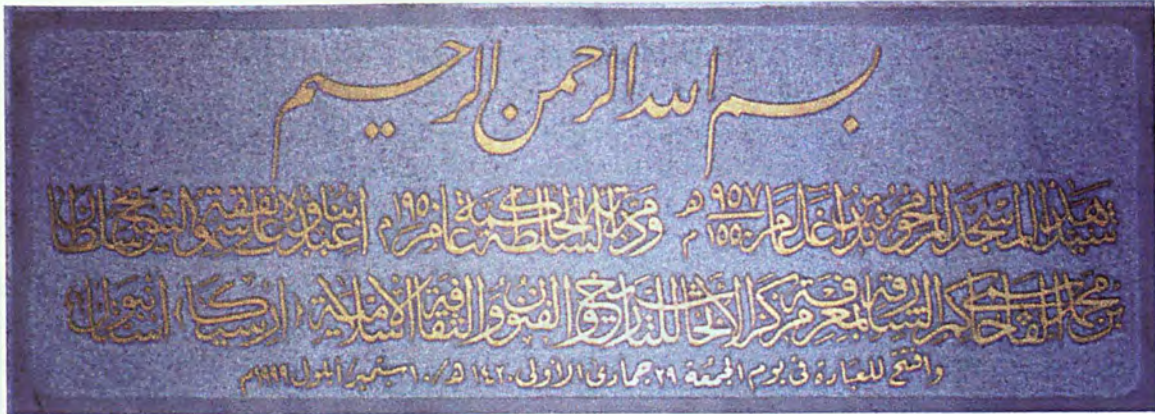 بسم الله الرحمن الرحيم
شيد هذا المسجد المرحوم عام ٩٥٧ هـ ١٥٥٠ م ودمرته السلطة الحاكمة عام ١٩٥٠ م أعيد بناؤه على نفقة سمو الشيخ سلطان
بن محمد القاسمي حاكم الشارقة بمعرفة مركز الأبحاث للتاريخ والفنون والثقافة الإسلامية (إرسيكا) استانبول
وافتتح للعبادة في يوم الجمعة ٢٩ جمادى الأولى ١٤٢٠ هـ / ١٠ سبتمبر أيلول ١٩٩٩م